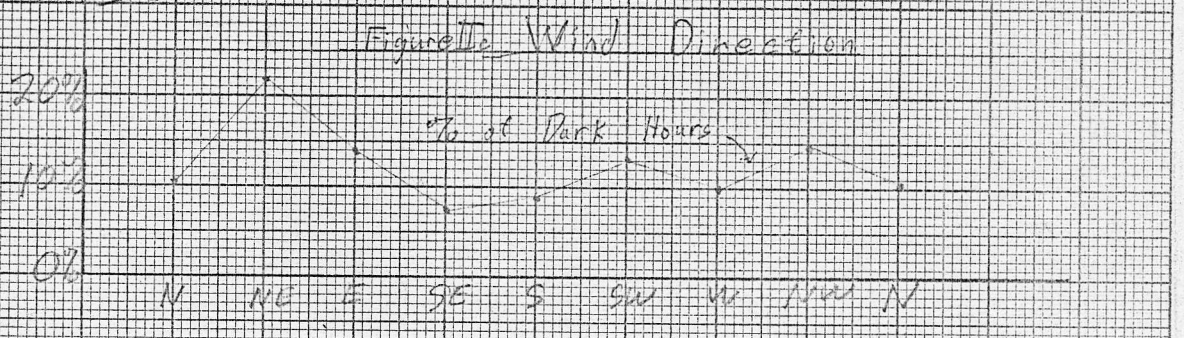 Figure IIc Wind Direction
20%
% of Dark Hours
10%
0%
N NE E SE S SW W NW N